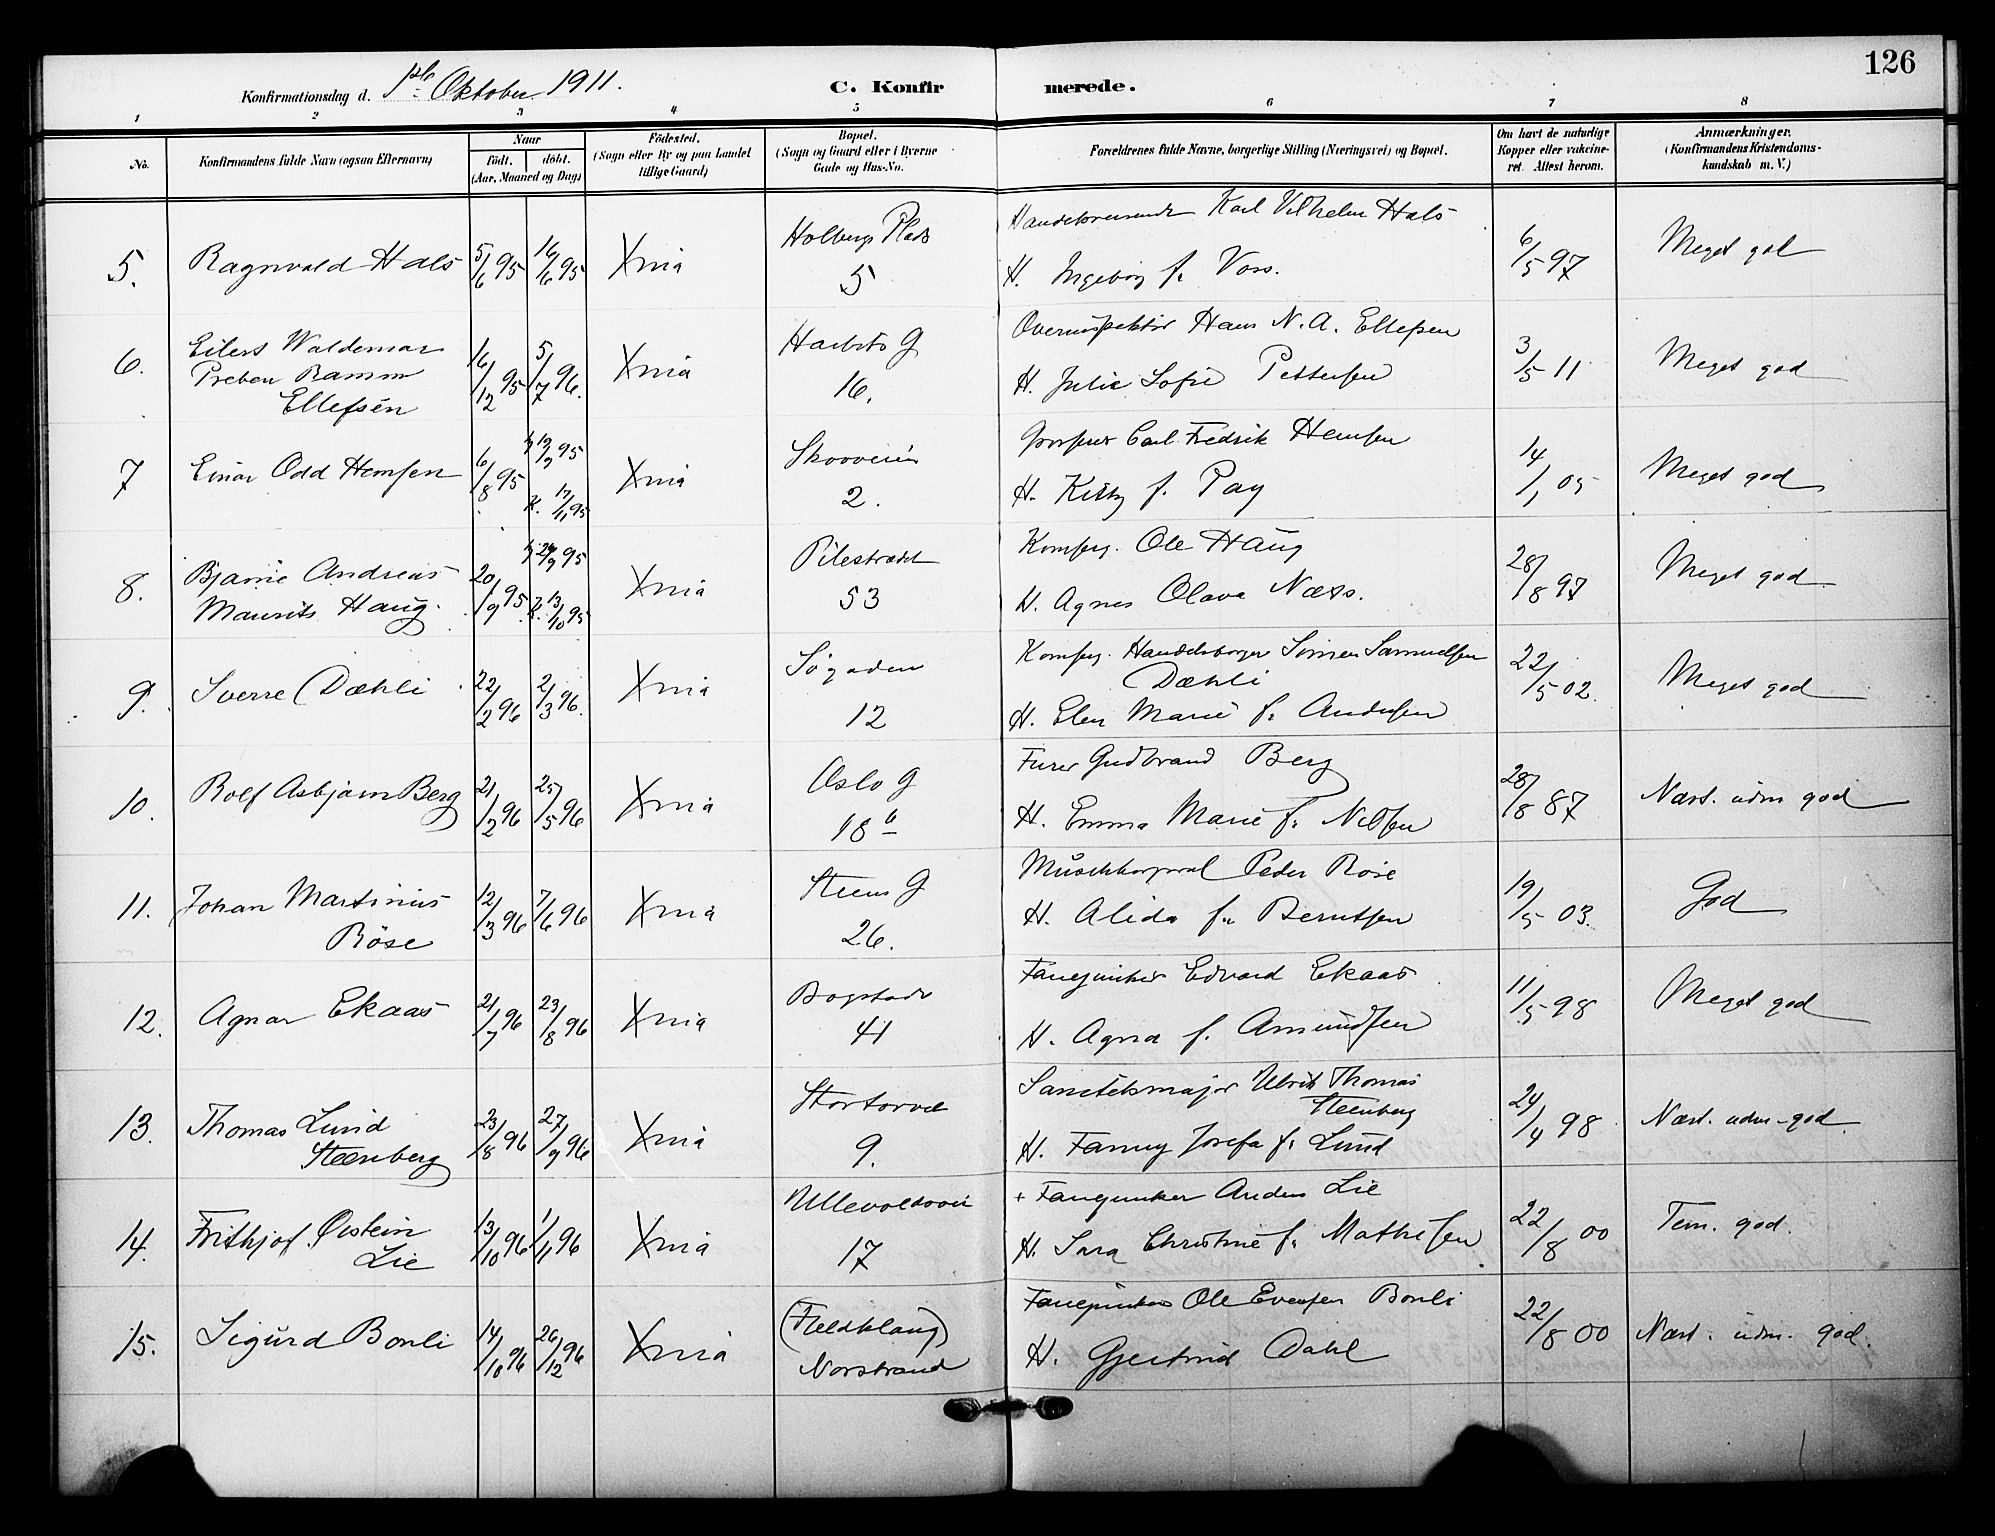 126
Konfirmationsdag d. 1ste Oktober 1911.
C. Konfirmerede.
1 2 3 4 5 6 7 8
No.
Konfirmandens fulde Navn (ogsaa Efternavn)
Naar
født. døbt.
(Aar, Maaned og Dag)
Födested.
(Sogn eller By og paa Landet
tillige Gaard)
Bopæl.
(Sogn og Gaard eller i Byerne
Gade og Hus-No.
Forældrenes fulde Navne, borgerlige Stilling (Næringsvei) og Bopæl.
Om havt de naturlige
Kopper eller vakcine-
ret. Attest herom.
Anmærkninger.
(Konfirmandens Kristendoms-
kundskab m. V.)
5. Ragnvald Hals 5/6 95 16/6 95 Xnia Holbergs Plads 5
Handelsreisende Karl Vilhelm Hals
H. Ingeborg f. Voss.
6/5 97 Meget god
6. Eilert Waldemar
Preben Ramm
Ellefsen
16/12 95 5/7 96. Xnia G 16.
Overinspektør Hans N. A. Ellefsen
H. Julie Sofie Pettersen
3/5 11 Meget god
7 Einar Odd Hemsen 6/8 95 19/9 95
K. 17/11 95
Xnia Skovveien 2.
Grosserer Carl Fredrik Hemsen
H. Kitty f. Pay
14/1 05 Meget god
8. Bjarne Andreas
Maurits Haug.
20/9 95 29/9 95
K. 13/10 95
Xnia Pilestrædet 53
Komfog. Ole Haug
H. Agnes Olava Næss.
28/8 97 Meget god
9. Sverre Dæhli 22/2 96 2/3 96. Xnia Søgaden 12
Handelsborger Simen Samuelsen
Dæhli
H. Elen Marie f. Andersen
22/5 02. Meget god
10. Rolf Asbjørn Berg 21/2 96 25/5 96 Xnia Oslo G 18b
Furer Gudbrand Berg
H. Emma Marie f. Nilsen
28/8 87 Næst. udm god
11. Johan Martinius
Röse
12/3 96 7/6 96 Xnia Steens G 26.
Musikkorporal Peder Röse
H. Alida f. Berntsen
19/5 03. God
12. Agnar Ekaas 21/7 96 23/8 96 Xnia Bogstadv 41
Fanejunker Edvard Ekaas
H. Agna f. Amundsen
11/5 98 Meget god
13. Thomas Lund
Steenberg
23/8 96 27/9 96 Xnia Stortorvet 9.
Sanitetsmajor Ulrik Thomas
Steenberg
H. Fanny Josefa f. Lund
24/4 98 Næst. udm-god
14. Frithjof Øistein
Lie
13/10 96 1/11 96 Xnia Ullevoldsvei 17
+ Fanejunker Anders Lie
H. Sara Christine f. Mathisen
22/8 00 Tem. god.
15. Sigurd Bonli 14/10 96 26/12 96 Xnia
(Fjeldklang)
Norstrand
Fanejunker Ole Evensen Bonli
H. Gjertrud Dahl
22/8 00 Næst. udm. god.